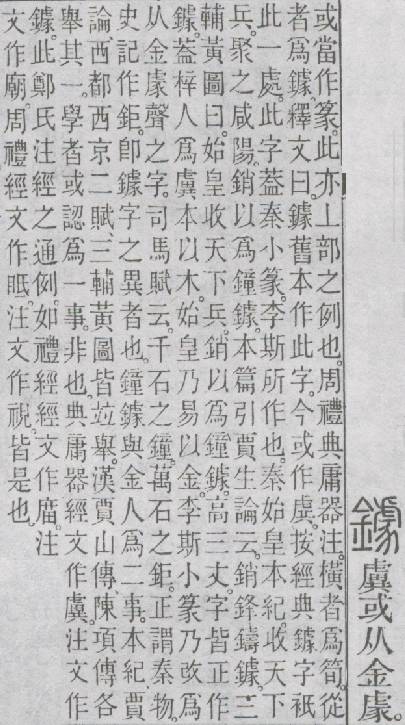 鐻虡或从金豦。
或當作篆。此亦丄部之例也。周禮典庸器注。橫者爲筍。從
者爲鐻。釋文曰。鐻舊本作此字。今或作虡。按經典鐻字衹
此一處。此字葢秦小篆。李斯所作也。秦始皇本紀。收天下
兵。聚之咸陽。銷以爲鐘鐻。本篇引賈生論云。銷鋒鑄鐻。三
輔黃圖曰。始皇收天下兵。銷以爲鐘鐻。高三丈。字皆正作
鐻。葢梓人爲虡本以木。始皇乃易以金。李斯小篆乃改爲
从金豦聲之字。司馬賦云。千石之鐘。萬石之鉅。正謂秦物。
史記作鉅。卽鐻字之異者也。鐘鐻與金人爲二事。本紀賈
論。西都西京二賦。三輔黃圖皆竝舉。漢賈山傳。陳項傳各
舉其一。學者或認爲一事。非也。典庸器經文作虡。注文作
鐻。此鄭氏注經之通例。如禮經經文作庿。注
文作廟。周禮經文作眡。注文作視。皆是也。